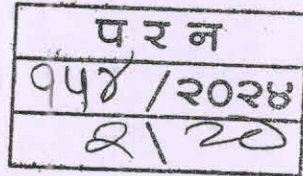 प र न
१५४ /२०२४
२\२०